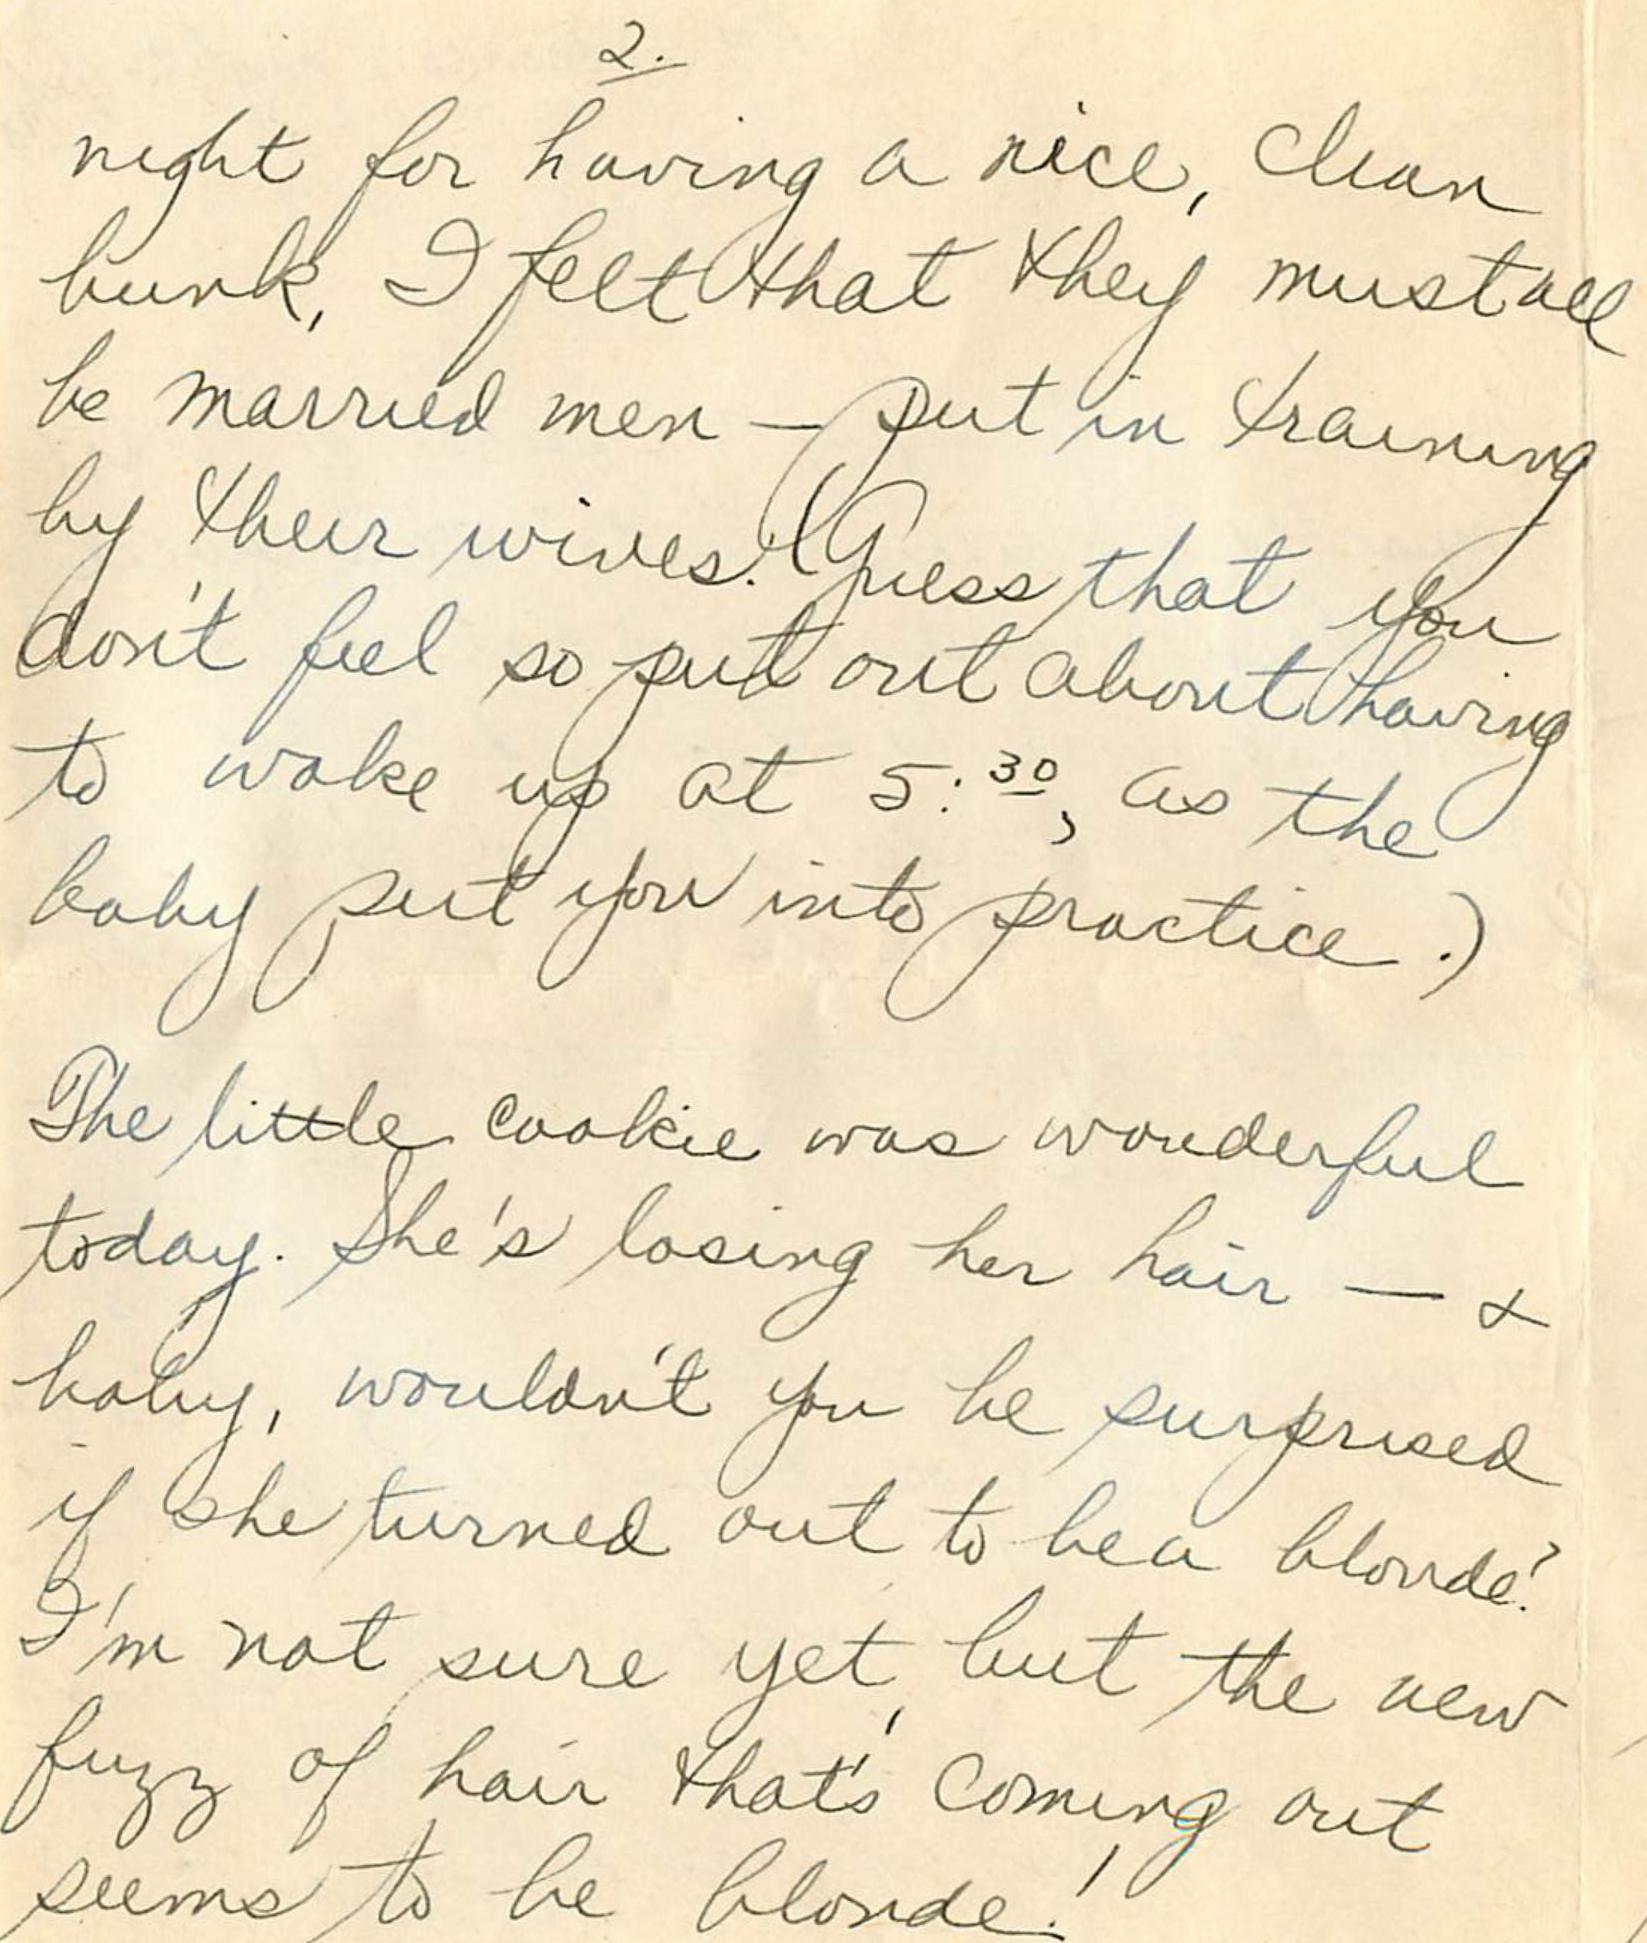 2.
night for having a nice, clean
bunk, I felt that they must all
be married men — put in training
by their wives! (Guess that you
don't feel so put out about having
to wake up at 5:30, as the
baby put you into practice.)
The little cookie was wonderful
today. She's losing her hair — &
baby, wouldn't you be surprised
if she turned out to be a blonde?
I'm not sure yet, but the new
fuzz of hair that's coming out
seems to be blonde!